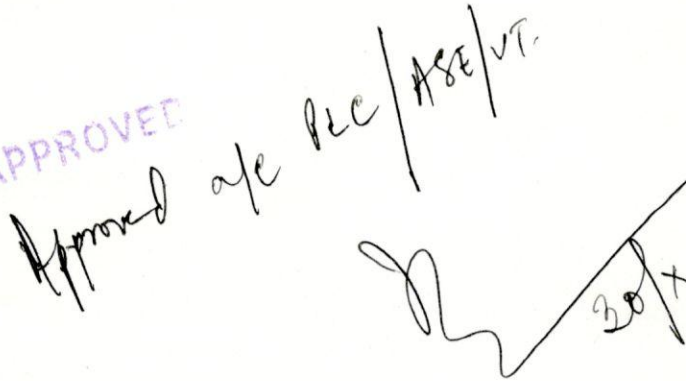 APPROVED
Approved a/c PLC/ASE/VT.
30/x